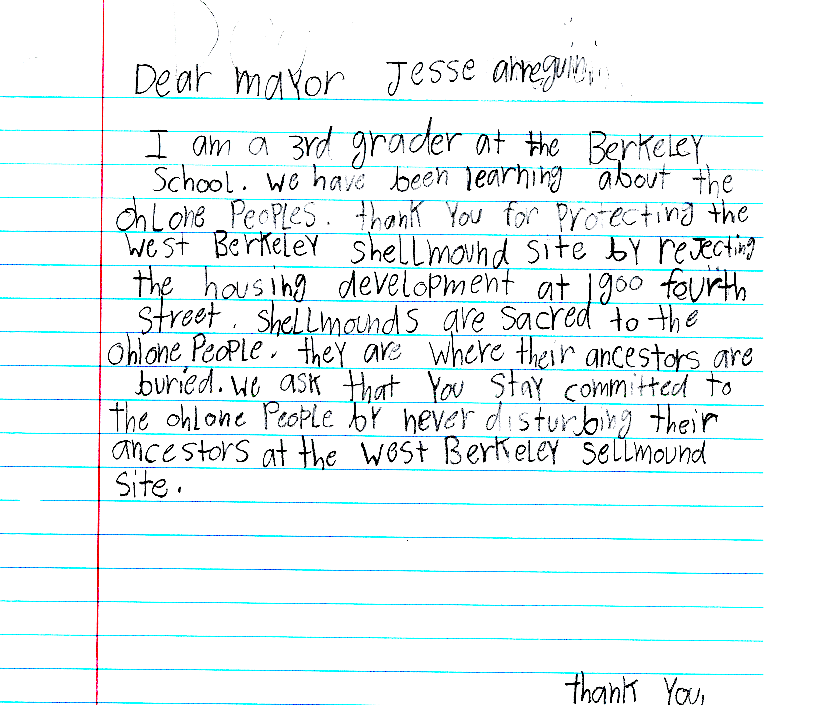 Dear mayor Jesse arreguin
I am a 3rd grader at the Berkeley
School. we have been learning about the
ohlone Peoples. thank you for Protecting the
west Berkeley shellmound site by rejecting
the housing development at 1900 fourth
street. shellmounds are sacred to the
ohlone People. they are where their ancestors are
buried. we ask that you stay committed to
the ohlone People by never disturbing their
ancestors at the west Berkeley sellmound
site.
thank you,